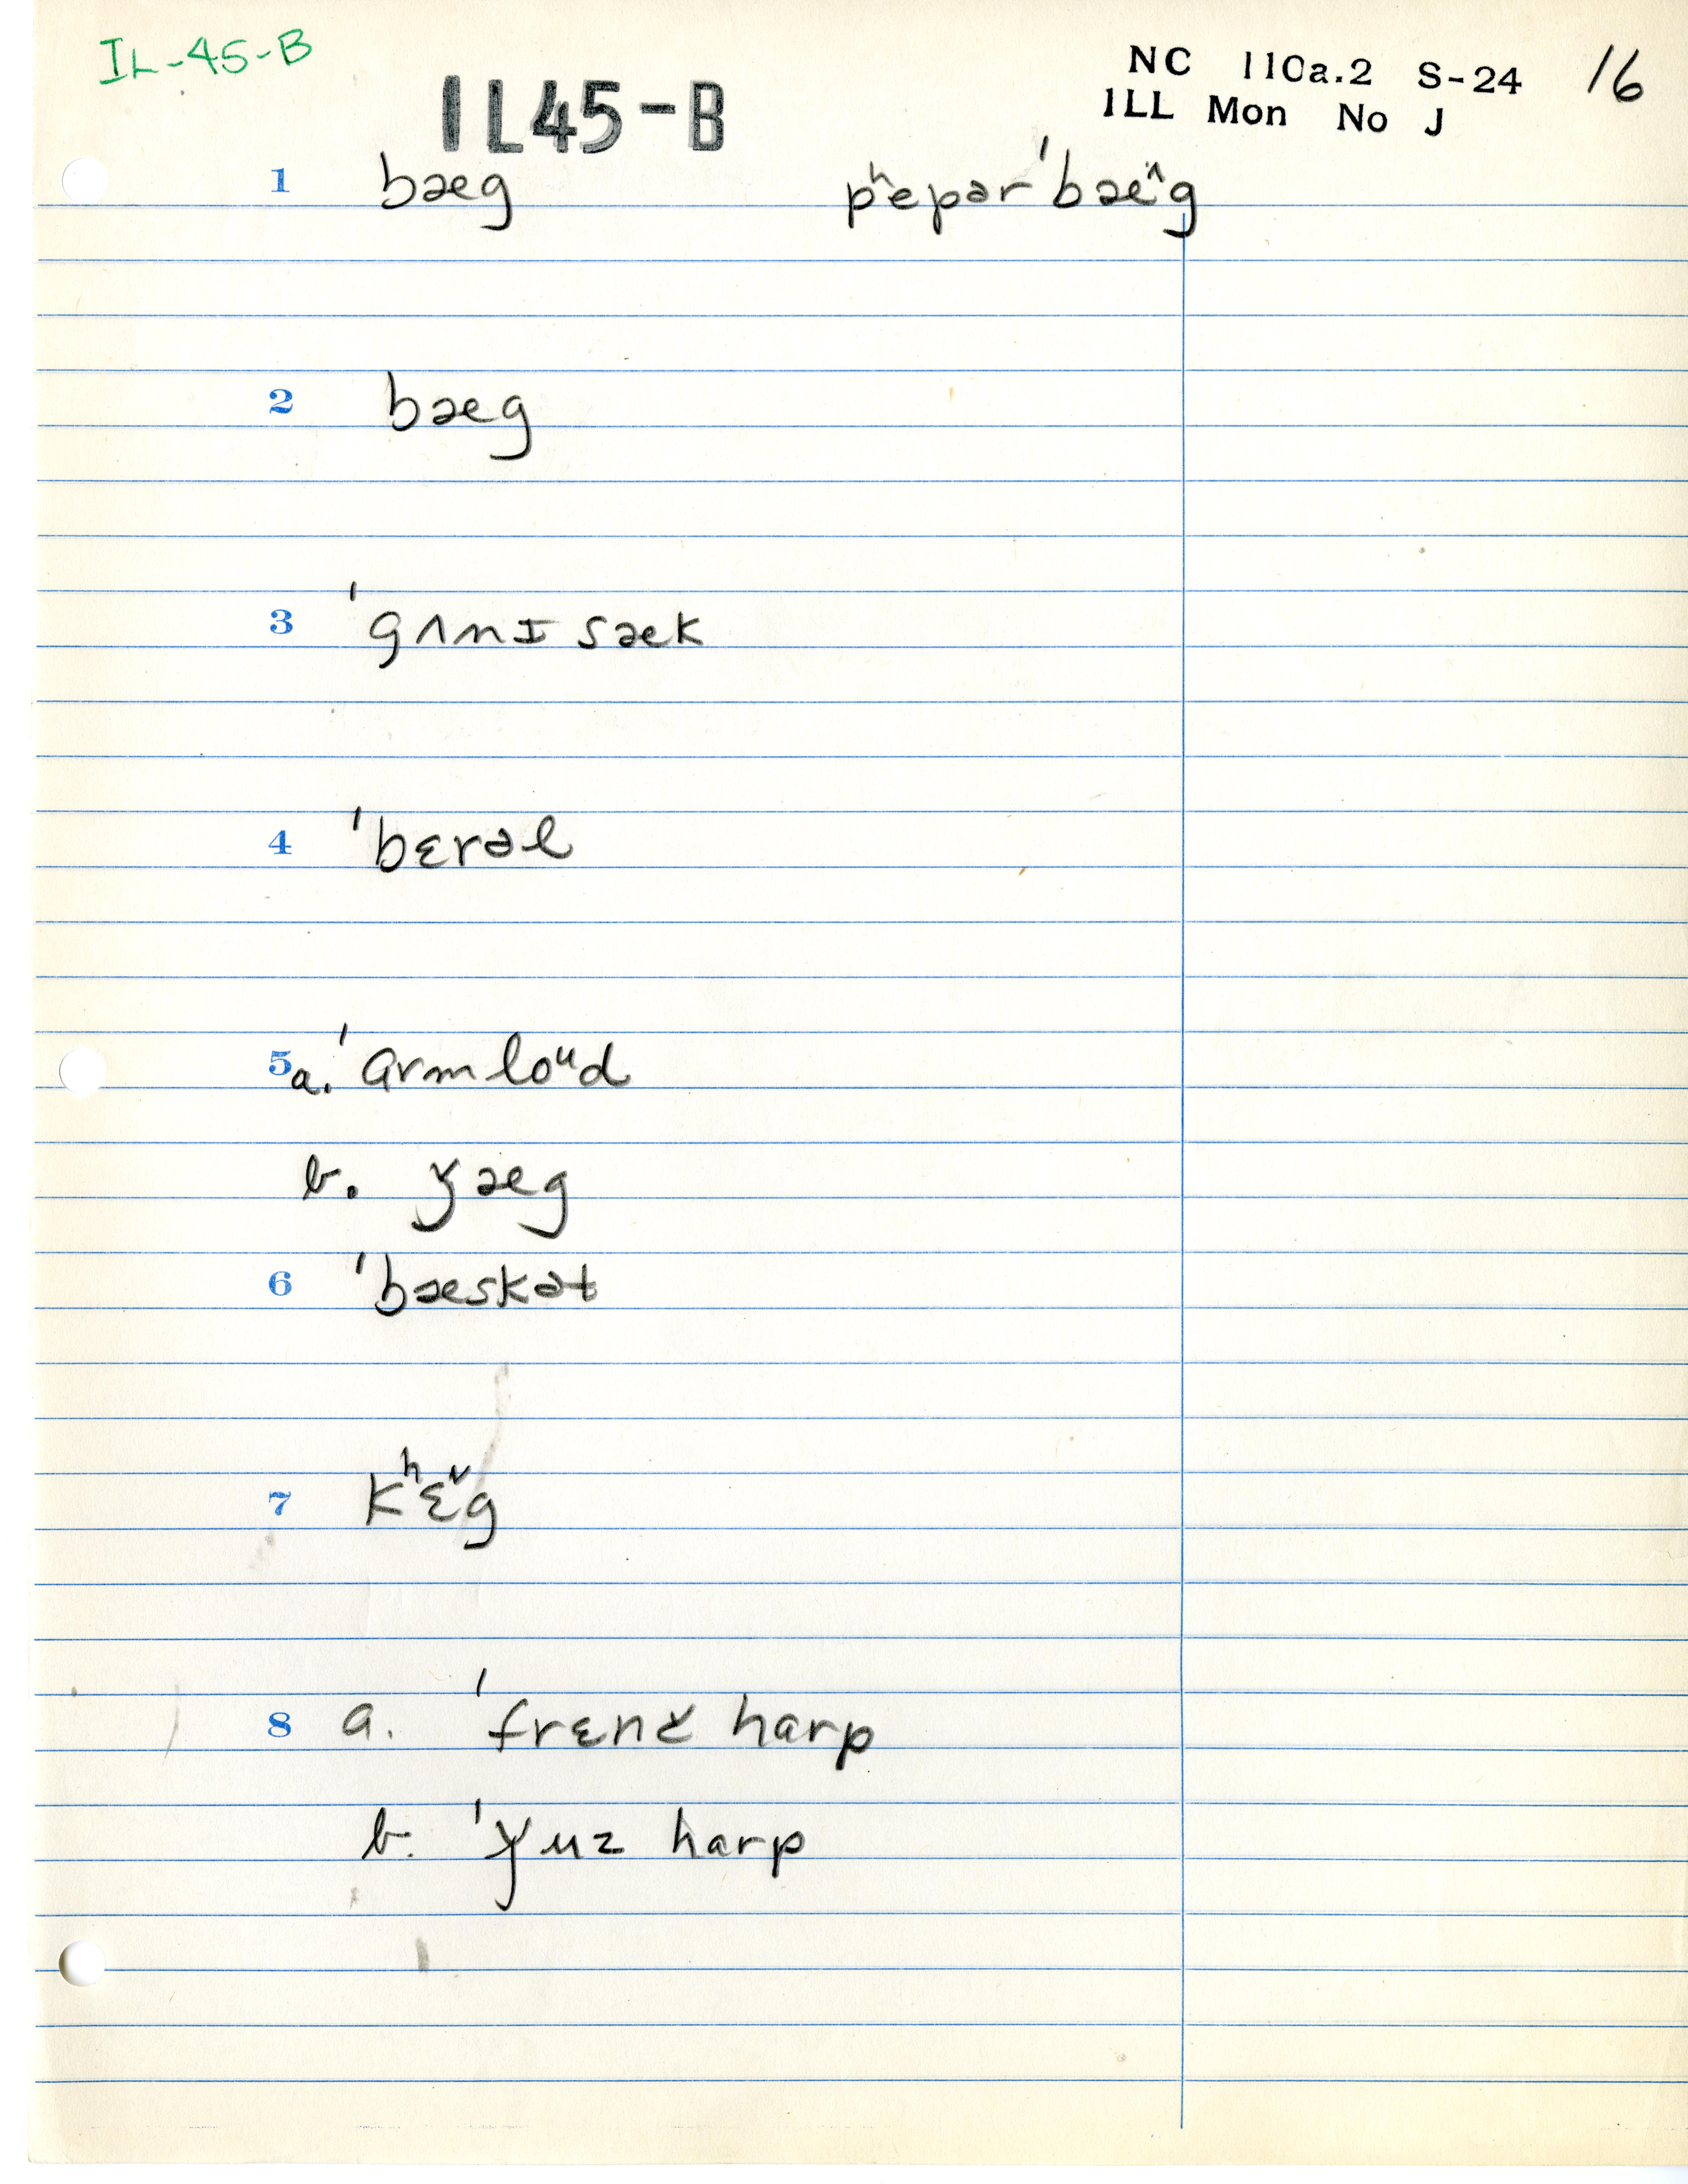 IL-45-B
IL45-B
NC 110a.2 S-24 16
ILL Mon No J
1 bæg pʰepər ˈbæ^g
2 bæg
3 ˈgʌnɪ sæk
4 ˈbɛrəl
5a. ˈarm loᵘd
b. ǰæg
6 ˈbæskət
7 kʰɛ˅g
8 a. ˈfrɛnč harp
b. ˈǰuz harp